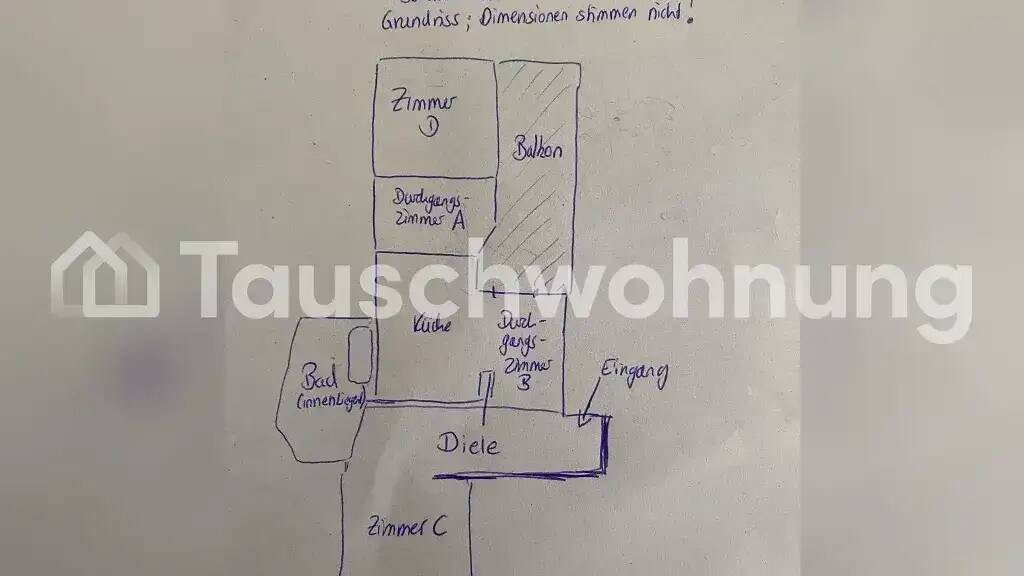 Grundriss; Dimensionen stimmen nicht!
Zimmer
D
Balkon
Durchgangs-
zimmer A
Tauschwohnung
Küche
Durch-
gangs-
zimmer
B
Eingang
Bad
(innenliegend)
Diele
Zimmer C